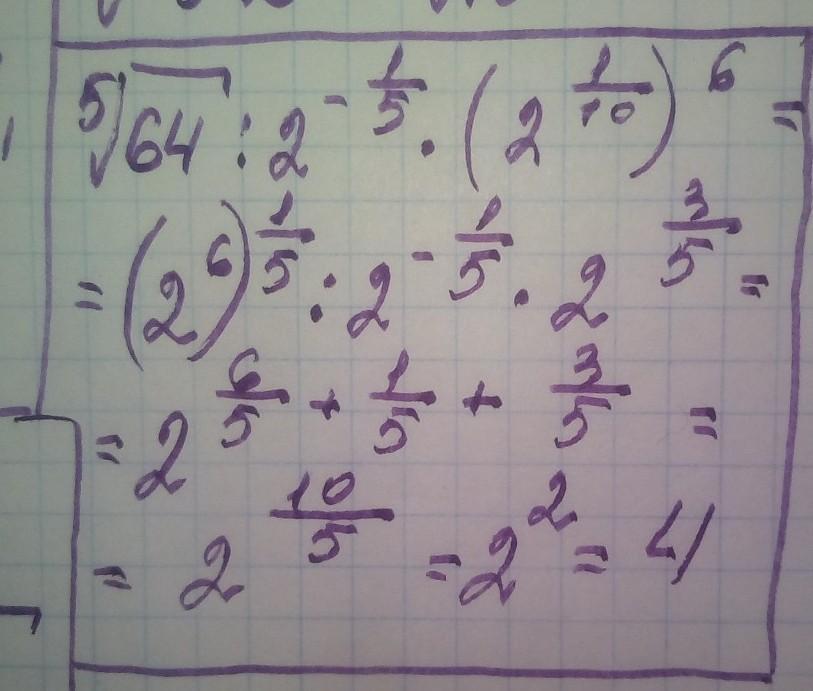 ⁵√64 : 2^(-1/5) · (2^(1/10))^6 =
= (2^6)^(1/5) : 2^(-1/5) · 2^(3/5) =
= 2^(6/5 + 1/5 + 3/5) =
= 2^(10/5) = 2^2 = 4